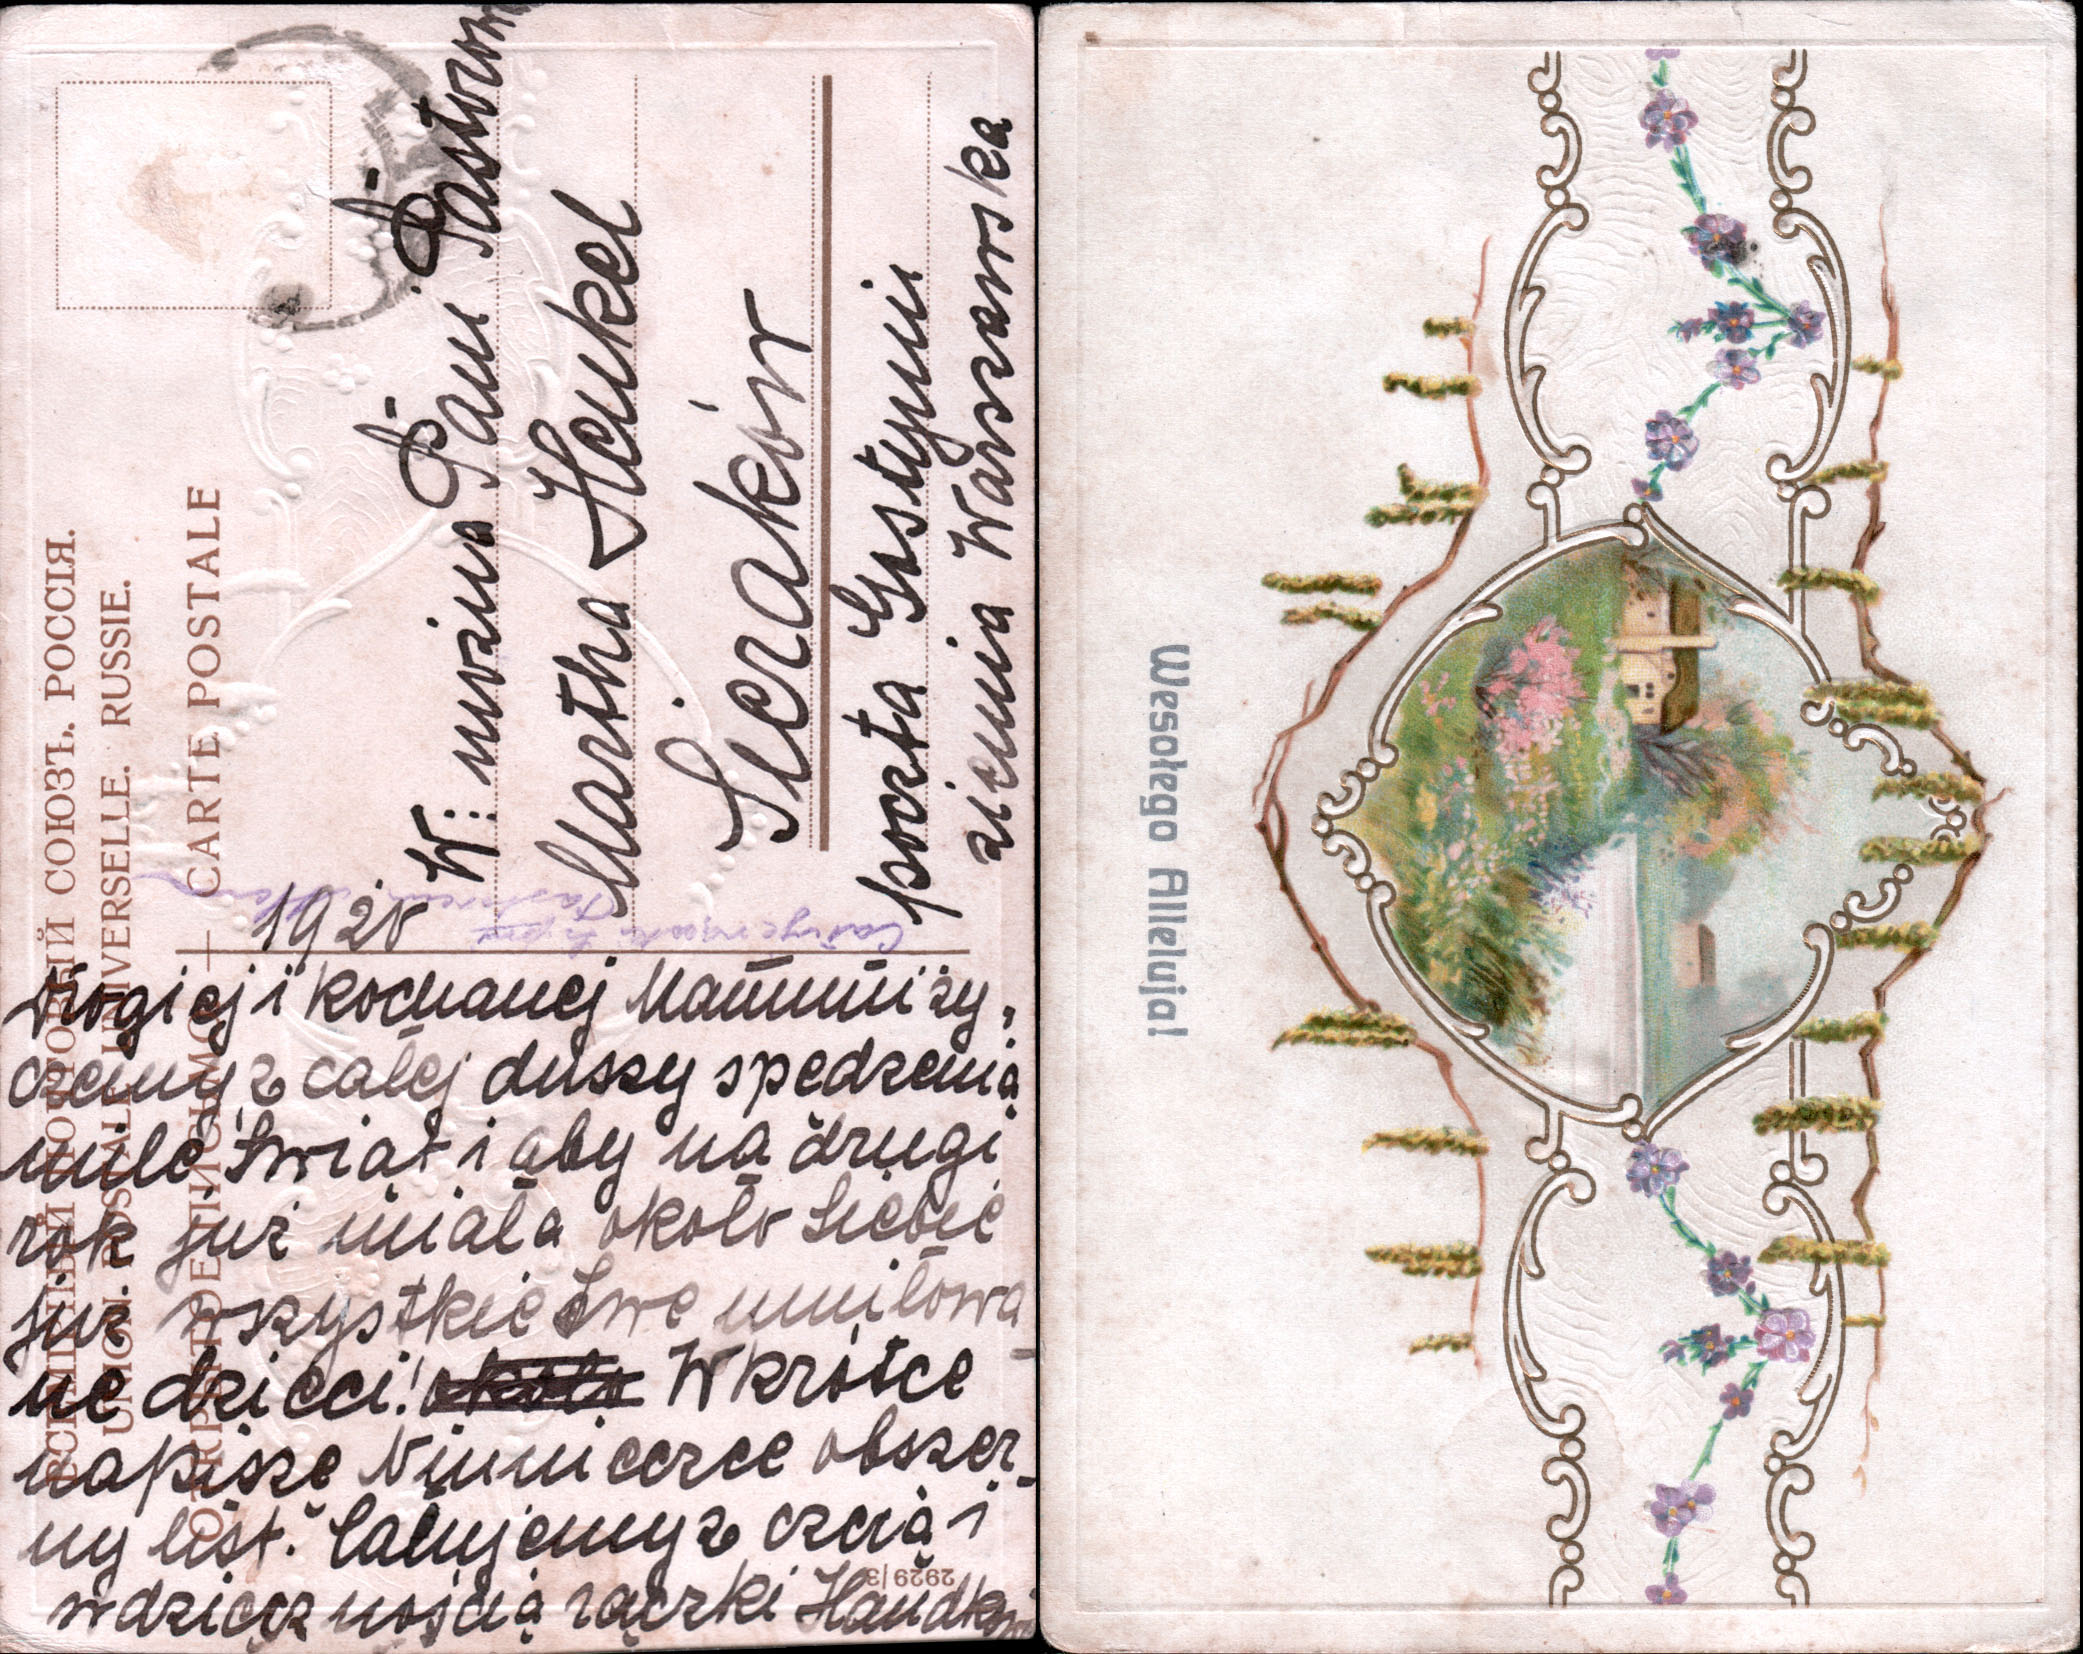 ВСЕМІРНЫЙ ПОЧТОВЫЙ СОЮЗЪ. РОССІЯ.
UNION POSTALE UNIVERSELLE. RUSSIE.
ОТКРЫТОЕ ПИСЬМО — CARTE POSTALE
1920
W: można Pani Pastorow
Martha Henkel
Sieraków
poczta Gostynin
ziemia Warszawska
Drogiej i kochanej Mammmi ży,
czemy z całej duszy spędzenia
miłe Świąt i aby na drugi
rok już miała około Siebie
już wszystkie Swe umiłowa
ne dzieci! około Wkrótce
napiszę obszer_
ny list. Całujemy z czcią i
wdzięcznością rączki
2929/3
Wesołego Alleluja!